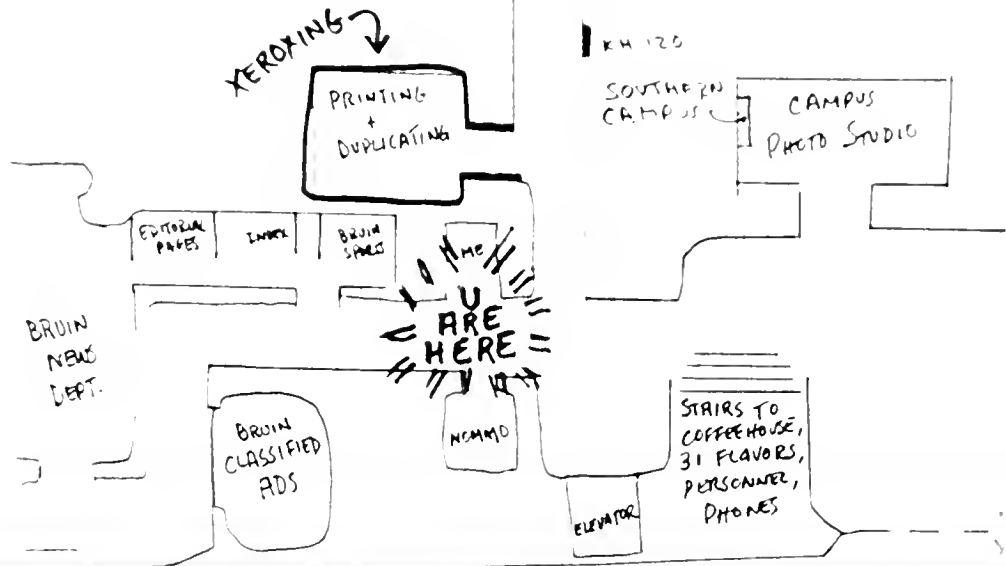 XEROXING
PRINTING
+
DUPLICATING
KH 120
SOUTHERN
CAMPUS
CAMPUS
PHOTO STUDIO
EDITORIAL
PAGES
INDEX
BRUIN
SPORTS
ME
U
ARE
HERE
BRUIN
NEWS
DEPT.
BRUIN
CLASSIFIED
ADS
NOMMO
ELEVATOR
STAIRS TO
COFFEEHOUSE,
31 FLAVORS,
PERSONNEL,
PHONES